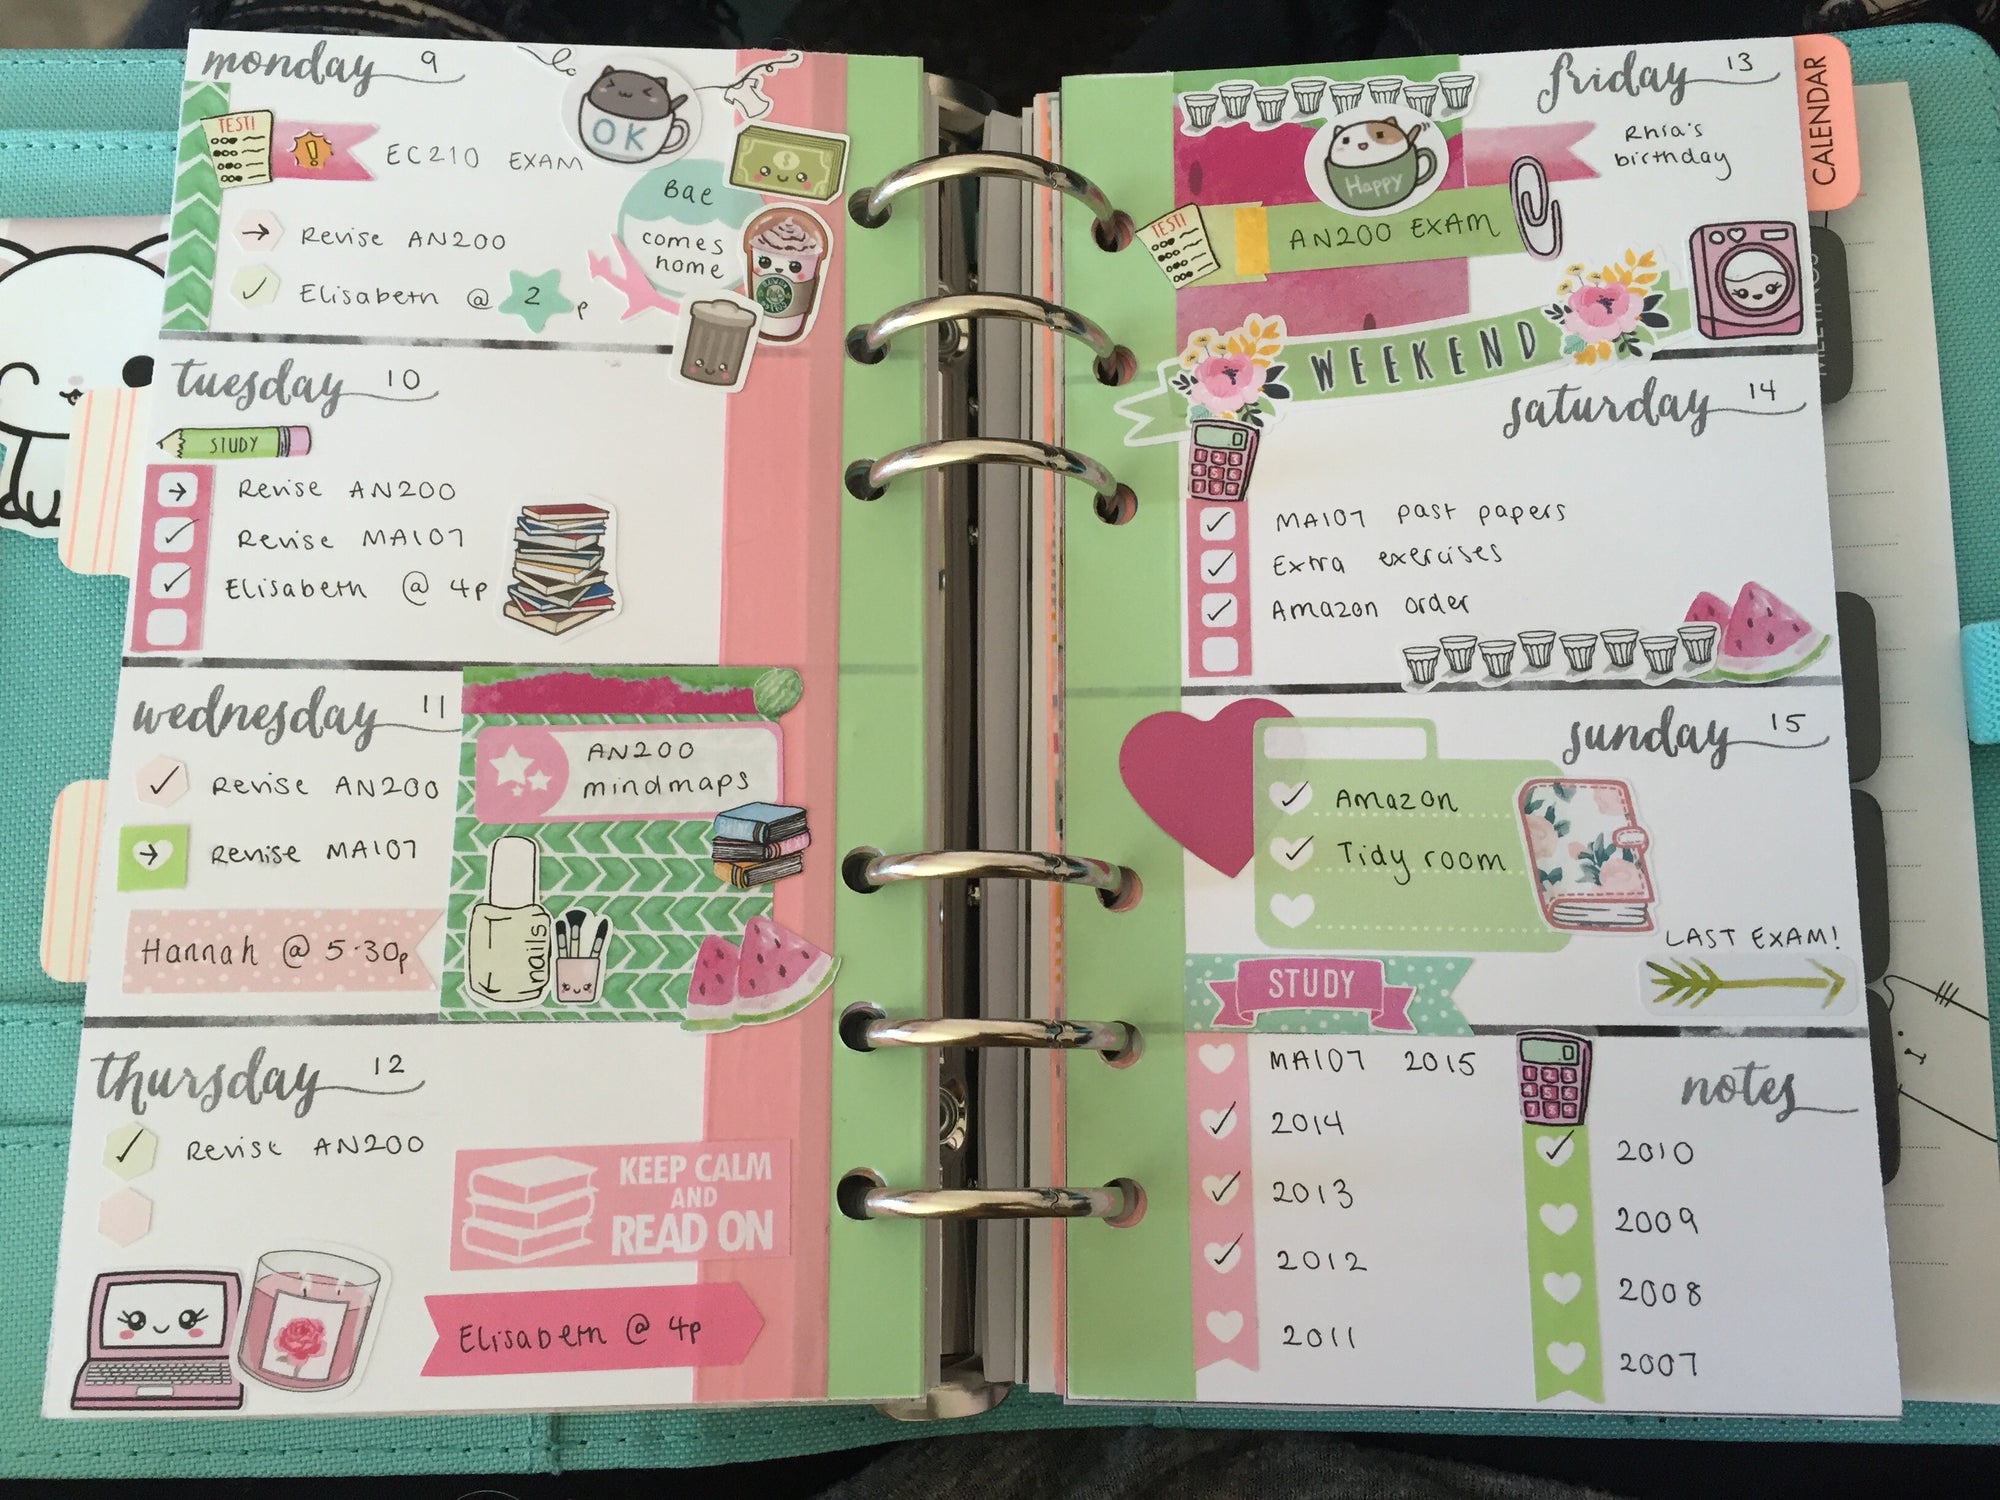 monday 9
TEST!
!
EC210 EXAM
OK
Bae
comes
home
→ Revise AN200
✓ Elisabeth @ 2 p
tuesday 10
STUDY
→ Revise AN200
✓ Revise MA107
✓ Elisabeth @ 4p
wednesday 11
✓ Revise AN200
→ Revise MA107
Hannah @ 5·30p
AN200
mindmaps
nails
thursday 12
✓ Revise AN200
KEEP CALM
AND
READ ON
Elisabeth @ 4p
friday 13
Rhia's
birthday
Happy
TEST!
AN200 EXAM
WEEKEND
saturday 14
✓ MA107 past papers
✓ Extra exercises
✓ Amazon order
sunday 15
✓ Amazon
✓ Tidy room
LAST EXAM!
STUDY
MA107 2015
✓ 2014
✓ 2013
✓ 2012
2011
notes
✓ 2010
2009
2008
2007
CALENDAR